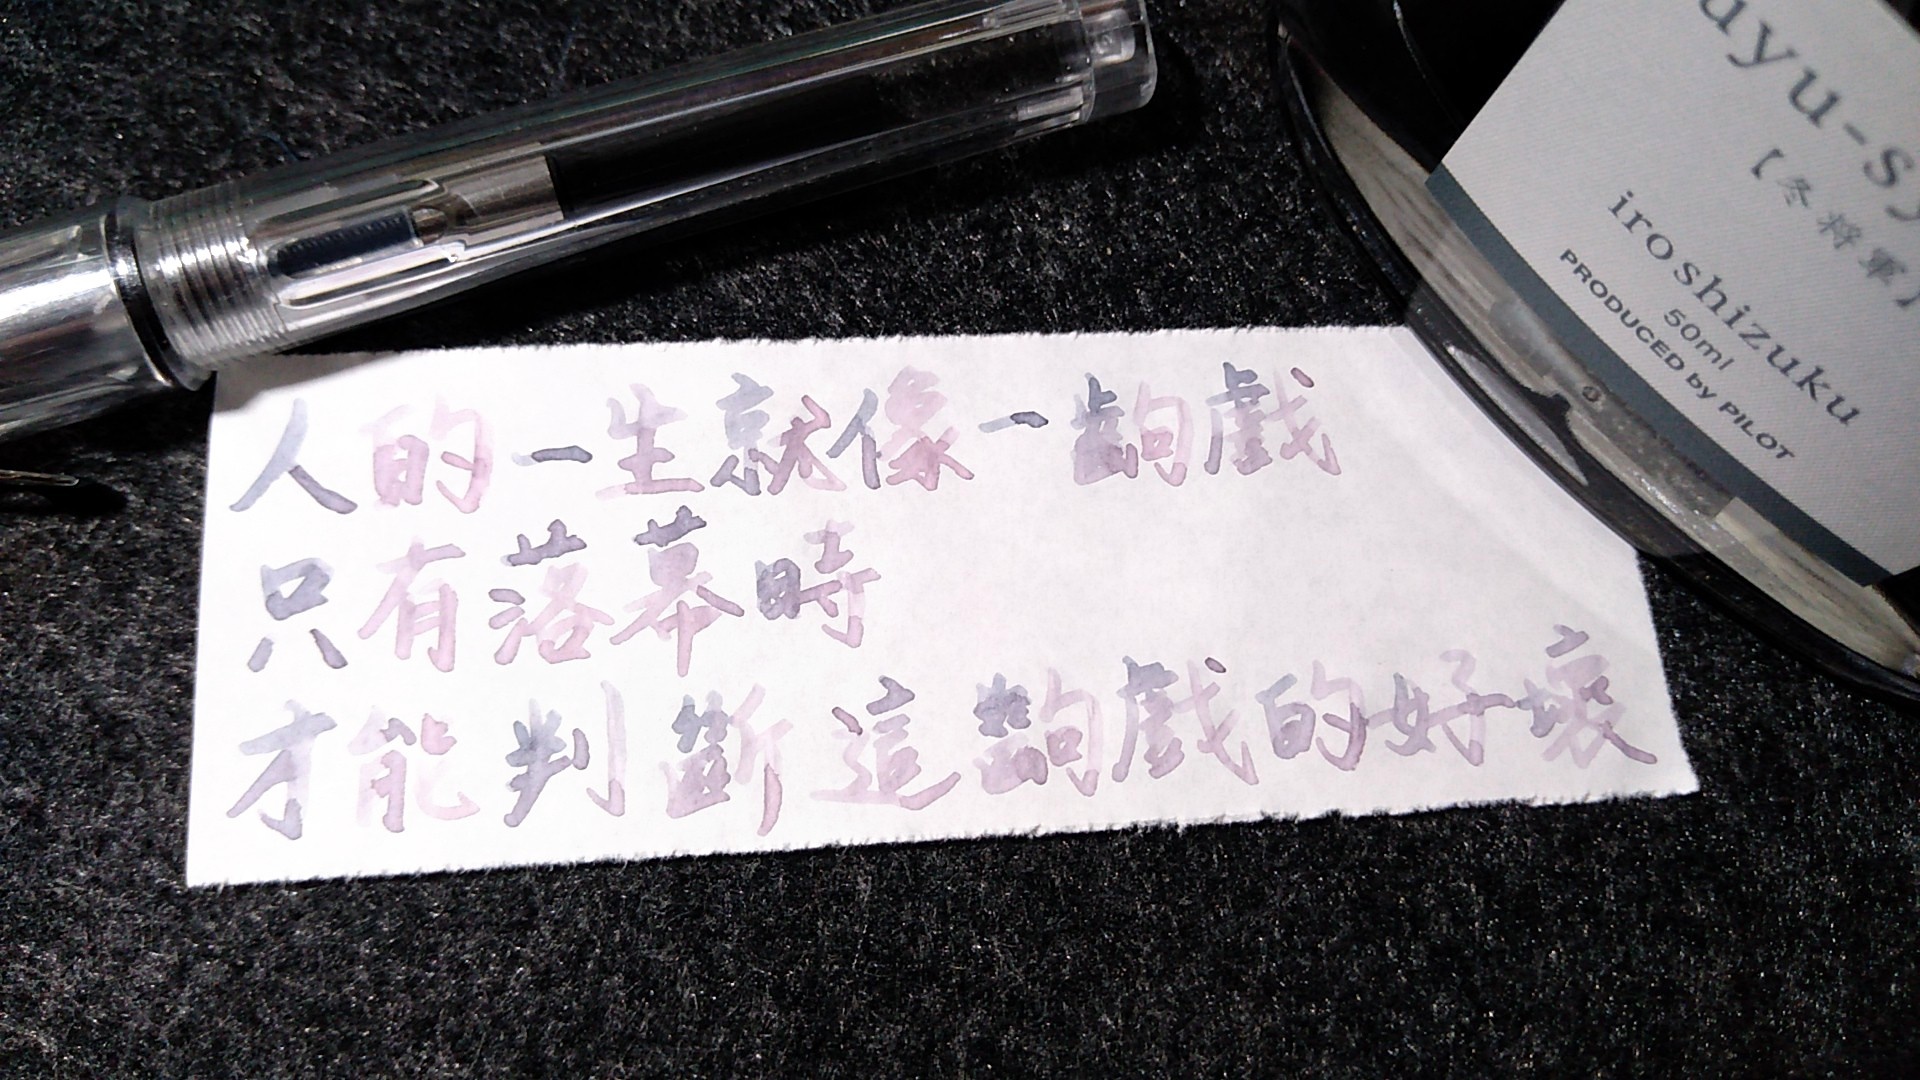 人的一生就像一齣戲
只有落幕時
才能判斷這齣戲的好壞
uyu-sy
【冬将軍】
iroshizuku
50ml
PRODUCED by PILOT